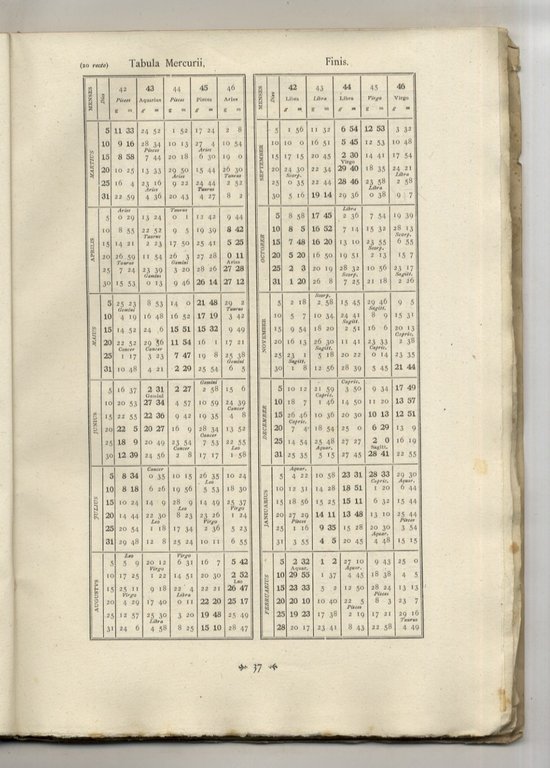 (20 recto) Tabula Mercurii, Finis.
MENSES Dies 42 43 44 45 46
Pisces Aquarius Pisces Pisces Aries
g m g m g m g m g m
MARTIUS
5 11 33 24 52 1 52 17 24 2 8
10 9 16 28 34 10 13 27 4 10 54
Pisces Aries
15 8 58 7 44 20 18 6 30 19 0
20 10 25 13 33 29 50 15 44 26 30
Aries Taurus
25 16 4 23 16 9 22 24 44 2 52
Aries Taurus
31 22 59 4 36 20 43 4 27 8 2
APRILIS
Aries Taurus
5 0 29 13 24 0 1 12 42 9 44
10 8 55 22 52 9 5 19 39 8 42
Taurus
15 14 21 2 23 17 50 25 41 5 25
20 26 59 11 54 26 3 28 0 11
Taurus Gemini Aries
25 7 24 23 39 3 20 28 26 27 28
Gemini
30 15 53 0 13 9 46 26 14 27 12
MAIUS
5 25 23 8 53 14 0 21 48 29 2
Gemini Taurus
10 4 19 16 48 16 52 17 19 3 42
15 14 52 24 6 15 51 15 32 9 49
20 22 52 29 56 11 54 16 1 17 21
Cancer Cancer
25 1 17 3 23 7 47 19 8 25 38
Gemini
31 10 48 4 21 2 29 25 54 6 5
JUNIUS
Gemini
5 16 37 2 31 2 27 2 58 15 6
Gemini
10 20 53 27 34 4 57 10 59 24 39
Cancer
15 22 55 22 36 9 42 19 35 4 8
20 22 5 20 27 16 9 28 34 13 52
Cancer
25 18 9 20 49 23 54 7 53 22 55
Cancer Leo
30 12 39 24 56 2 8 17 17 1 58
JULIUS
Cancer
5 8 34 0 35 10 15 26 35 10 24
Leo
10 8 18 6 26 19 56 5 53 18 30
15 10 24 14 9 28 9 14 49 25 37
Leo Virgo
20 14 44 22 30 8 23 23 26 1 24
Leo Virgo
25 20 54 1 18 17 34 2 36 5 23
31 29 48 12 8 25 24 10 11 6 55
AUGUSTUS
Leo Virgo
5 5 9 20 12 6 31 16 7 5 42
Virgo
10 17 25 1 22 14 51 20 30 2 52
Leo
15 25 11 9 18 22 4 22 21 26 47
Virgo Libra
20 4 29 17 40 0 11 22 20 25 17
25 12 57 25 30 3 20 19 48 25 49
Libra
31 24 6 4 58 8 25 15 10 28 47
MENSES Dies 42 43 44 45 46
Libra Libra Libra Virgo Virgo
g m g m g m g m g m
SEPTEMBER
5 1 56 11 32 6 54 12 53 3 32
10 10 0 16 51 5 45 12 53 10 48
15 17 15 20 45 2 30 14 41 17 54
Virgo
20 24 30 22 34 29 40 18 35 24 21
Scorp. Libra
25 0 35 22 44 28 46 23 58 2 58
Libra
30 5 16 19 14 29 36 0 38 9 7
OCTOBER
Libra
5 8 58 17 45 2 36 7 54 19 39
10 8 5 16 52 7 14 15 32 28 13
Scorp.
15 7 48 16 20 13 10 23 55 6 55
Scorp.
20 5 20 16 50 19 51 2 13 15 7
25 2 3 20 19 28 32 10 56 23 17
Scorp. Sagitt.
31 1 20 26 8 7 25 21 18 2 26
NOVEMBER
Scorp.
5 2 18 2 58 15 45 29 46 9 5
Sagitt.
10 5 7 10 34 24 41 8 9 15 31
Sagitt.
15 9 54 18 20 2 51 16 6 20 13
Capric.
20 16 13 26 30 11 41 23 33 2 38
Sagitt. Capric.
25 23 1 5 18 20 22 0 14 23 35
Sagitt.
30 1 8 12 56 28 39 5 45 21 44
DECEMBER
Capric.
5 10 12 21 59 3 50 9 34 17 49
Capric.
10 18 7 1 46 14 50 11 20 13 57
15 26 46 10 36 20 30 10 13 12 51
Capric.
20 7 4 18 54 25 0 6 29 13 9
25 14 54 25 48 27 27 2 0 16 19
Sagitt.
31 25 35 5 15 27 45 28 41 22 55
JANUARIUS
Aquar.
5 4 22 10 58 23 31 28 33 29 30
Capric. Aquar.
10 12 31 14 28 18 51 1 20 6 44
15 18 56 15 25 15 11 6 32 15 44
20 27 29 14 11 13 48 13 10 25 44
Pisces Pisces
25 1 16 9 35 15 28 20 30 3 54
Aquar.
31 3 55 4 5 20 45 4 48 15 15
FEBRUARIUS
5 2 32 1 2 27 10 9 43 25 0
Aquar. Aquar.
10 29 55 1 37 4 45 18 38 4 5
15 23 33 5 2 12 50 28 24 13 13
Pisces
20 20 10 10 40 22 5 8 3 23 7
Pisces
25 19 23 17 38 2 19 17 21 29 16
Taurus
28 20 17 23 41 8 43 22 58 4 49
37